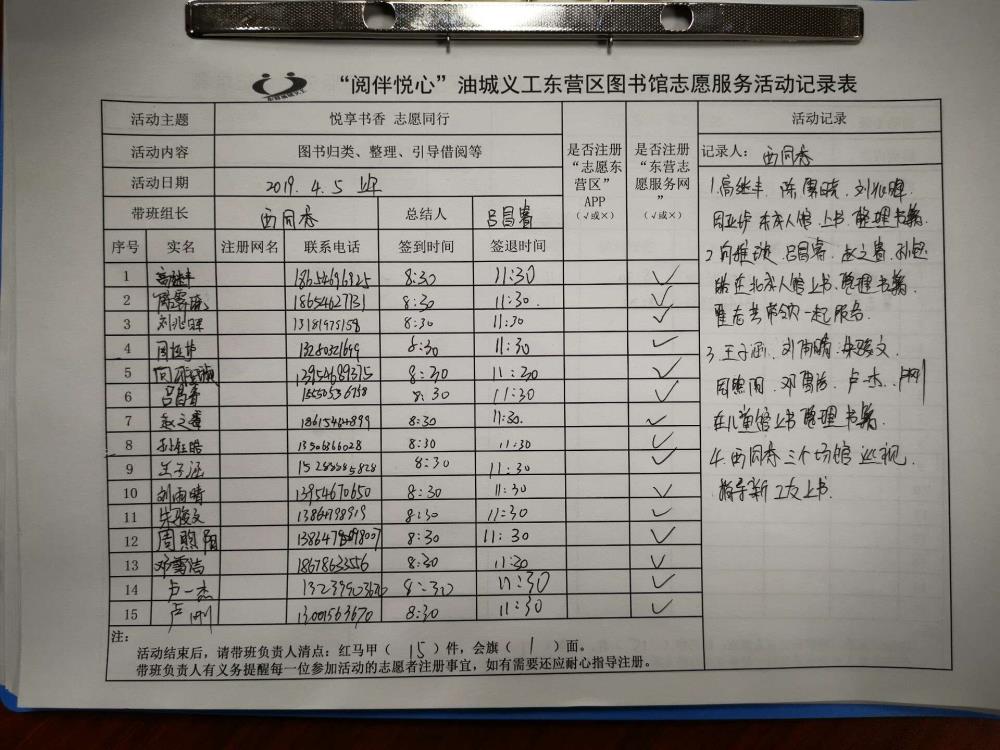 “阅伴悦心”油城义工东营区图书馆志愿服务活动记录表
活动主题 悦享书香 志愿同行
活动内容 图书归类、整理、引导借阅等
活动日期 2019.4.5 上午
带班组长 西同春 总结人 吕昌睿
序号 实名 注册网名 联系电话 签到时间 签退时间
是否注册“志愿东营区”APP（√或×）
是否注册“东营志愿服务网”（√或×）
1 高继丰 18654696825 8:30 11:30 √
2 18654627731 8:30 11:30. √
3 刘兆晖 13181975158 8:30 11:30 √
4 周亚护 13280321699 8:30 11:30 √
5 13954689375 8:30 11:30 √
6 吕昌睿 15550556758 8:30 11:30 √
7 赵之睿 8:30 11:30. √
8 13506366028 8:30 11:30 √
9 王子涵 8:30 11:30 √
10 刘雨晴 13954670650 8:30 11:30 √
11 朱骏文 8:30 11:30 √
12 周煦阳 8:30 11:30 √
13 邓雪洁 18678633556 8:30 11:30 √
14 卢一杰 8:30 11:30 √
15 卢刚 13001563670 8:30 11:30 √
注：
活动结束后，请带班负责人清点：红马甲（ 15 ）件，会旗（ 1 ）面。
带班负责人有义务提醒每一位参加活动的志愿者注册事宜，如有需要还应耐心指导注册。
活动记录
记录人：西同春
1.高继丰、陈 刘兆晖、
上书、整理书籍.
2. 吕昌睿、赵之睿、孙钰
皓在北成人馆上书、整理书籍.
一起服务.
3.王子涵、刘雨晴、朱骏文、
周煦阳、邓雪洁、卢一杰、卢刚
在儿童馆上书整理书籍.
4.西同春三个场馆巡视,
指导新义工上书.